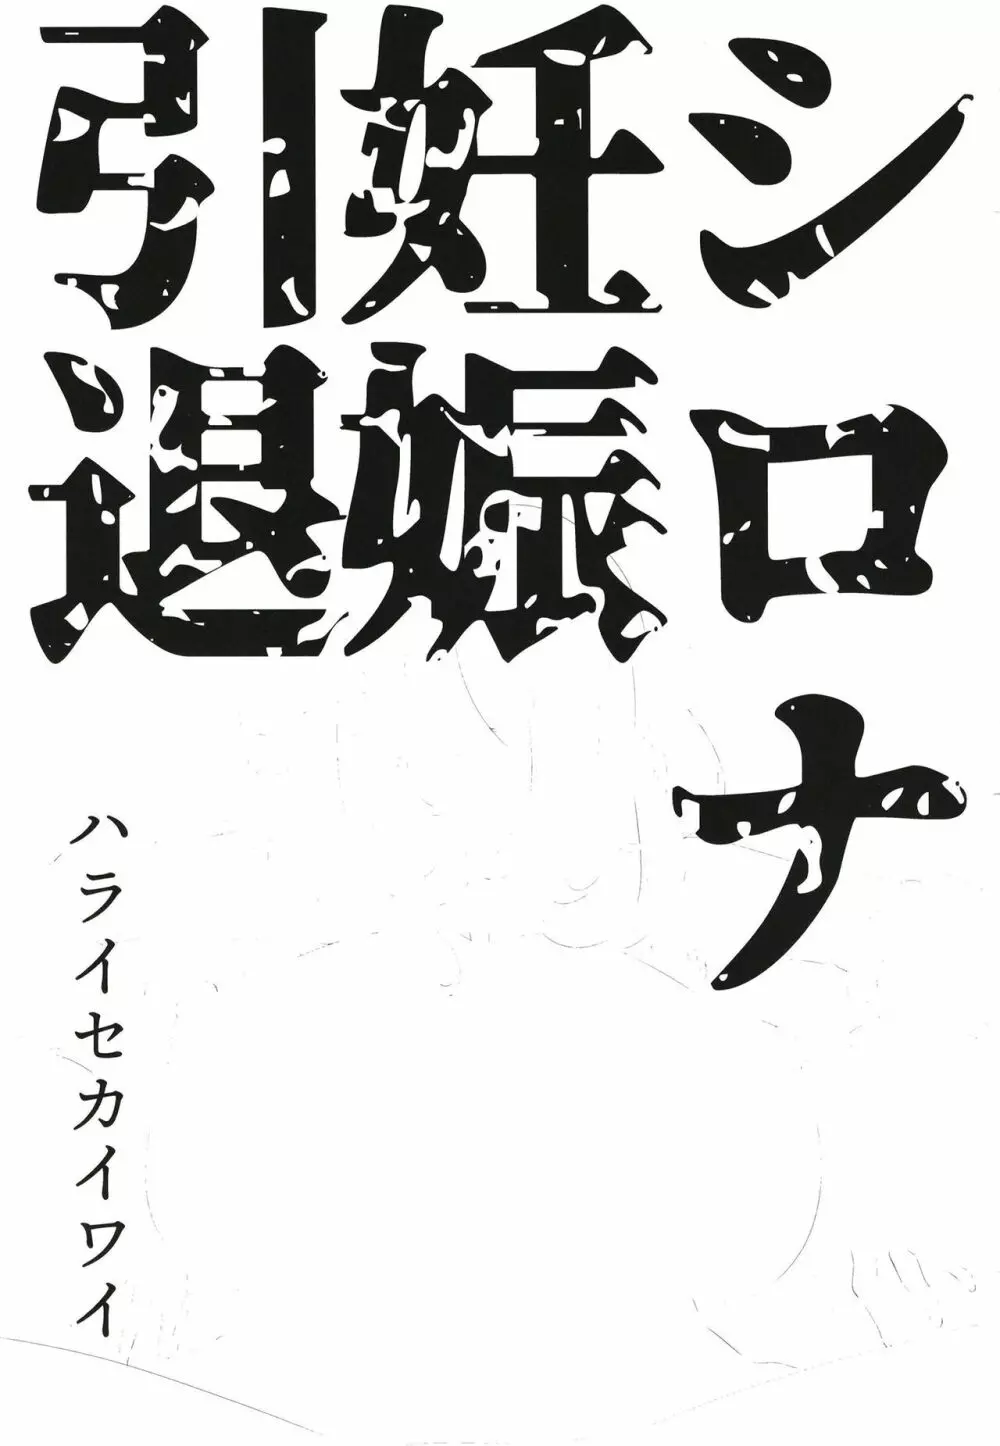 シロナ
妊娠
引退
ハライセカイワイ